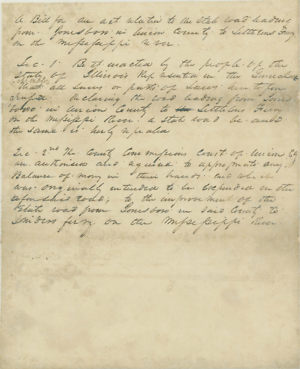 A Bill for an act relative to the state road leading
from Jonesboro in Union County to Littletons Ferry
on the Mississippi River.
Sec. 1 Be it enacted by the people of the
State of Illinois Represented in the General
that all laws or parts of laws
declaring the road leading from Jones
boro in Union County to Littletons Ferry
on the Mississippi River a state road be and
the same is hereby repealed
Sec. 2nd The County Commissioners Court of Union Co
are authorized and required to appropriate any
Balance of money in their hands and which
was originally intended to be expended on the
aforesaid road, to the improvement of the
State road from Jonesboro in said County to
ferry on the Mississippi River